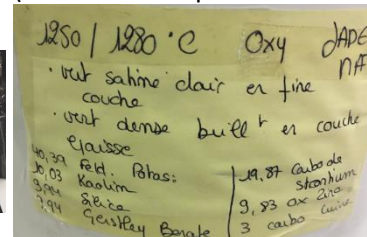 1250 / 1280 °C Oxy JADE
NA
• vert satiné clair en fine
couche
• vert dense brill^t en couche
épaisse
40,39 Feld. Potas:
10,03 Kaolin
Silice
3,94 Gerstley Borate
19,87 Carbo de
strontium
9,83 ox Zinc
3 carbo cuivre